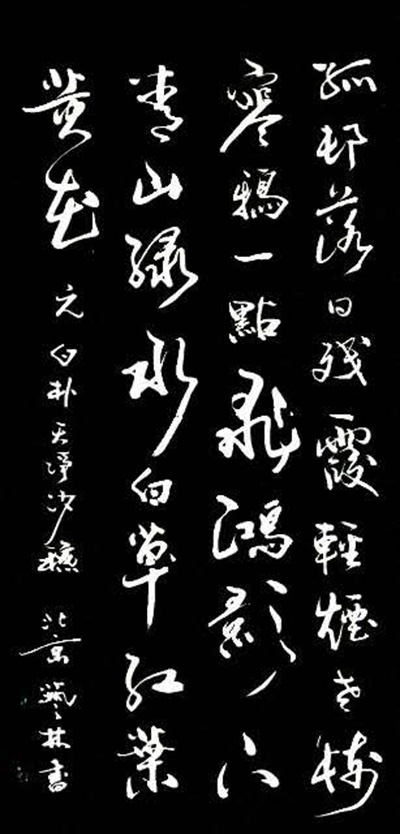 孤邨落日殘霞輕煙老樹
寒鴉一點飛鴻影下
青山綠水白草紅葉
黃花 元白朴天淨沙穐 北京 林書